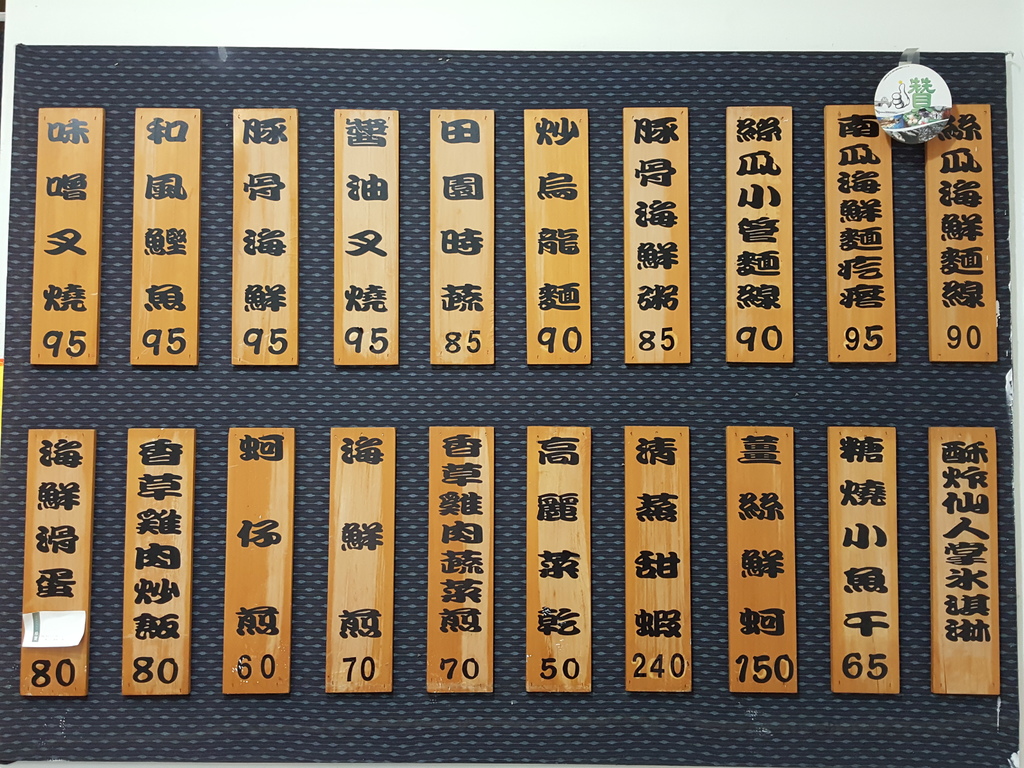 味噌叉燒95
和風鰹魚95
豚骨海鮮95
醬油叉燒95
田園時蔬85
炒烏龍麵90
豚骨海鮮粥85
絲瓜小管麵線90
南瓜海鮮麵疙瘩95
絲瓜海鮮麵線90
贊
海鮮滑蛋80
香草雞肉炒飯80
蚵仔煎60
海鮮煎70
香草雞肉蔬菜煎70
高麗菜乾50
清蒸甜蝦240
薑絲鮮蚵150
糖燒小魚干65
酥炸仙人掌冰淇淋